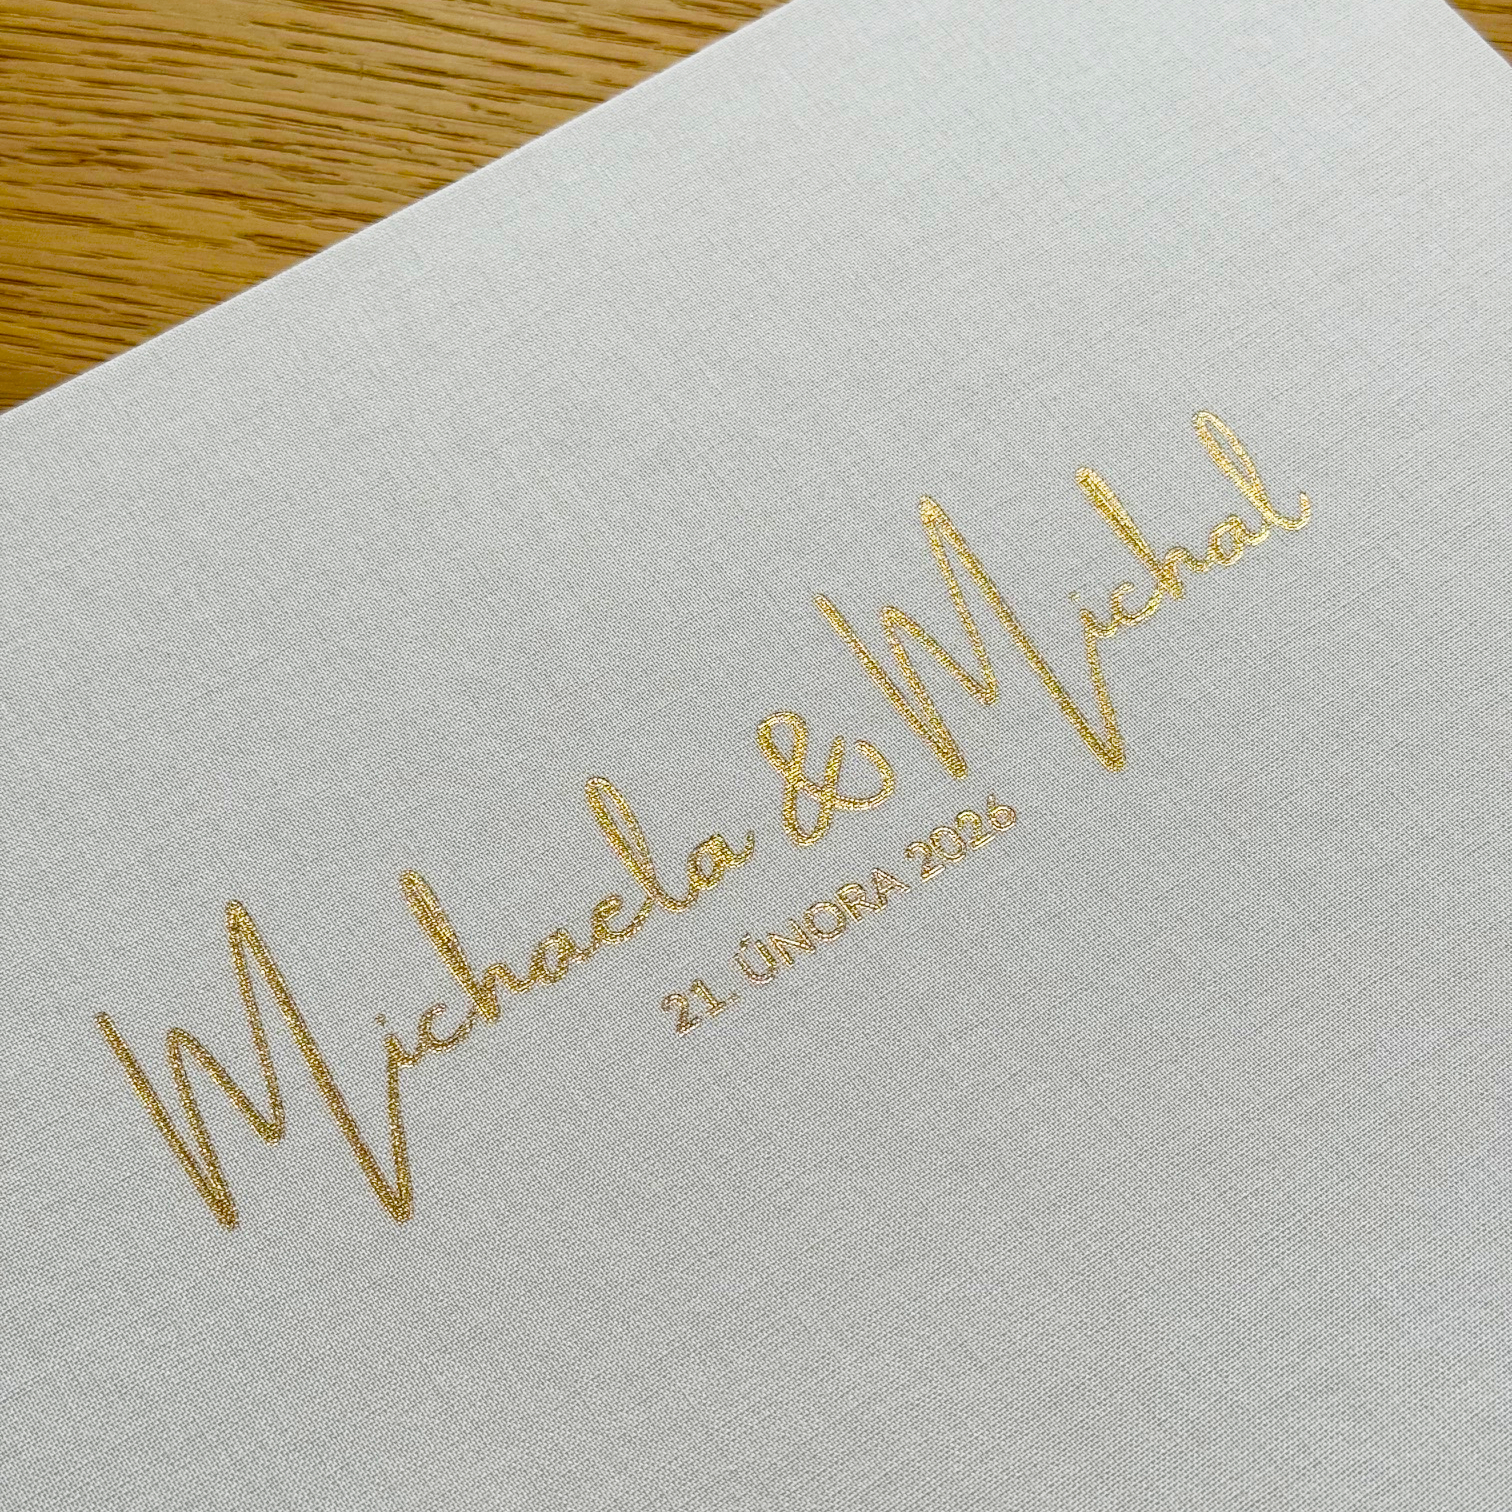 Michaela & Michal
21. ÚNORA 2026